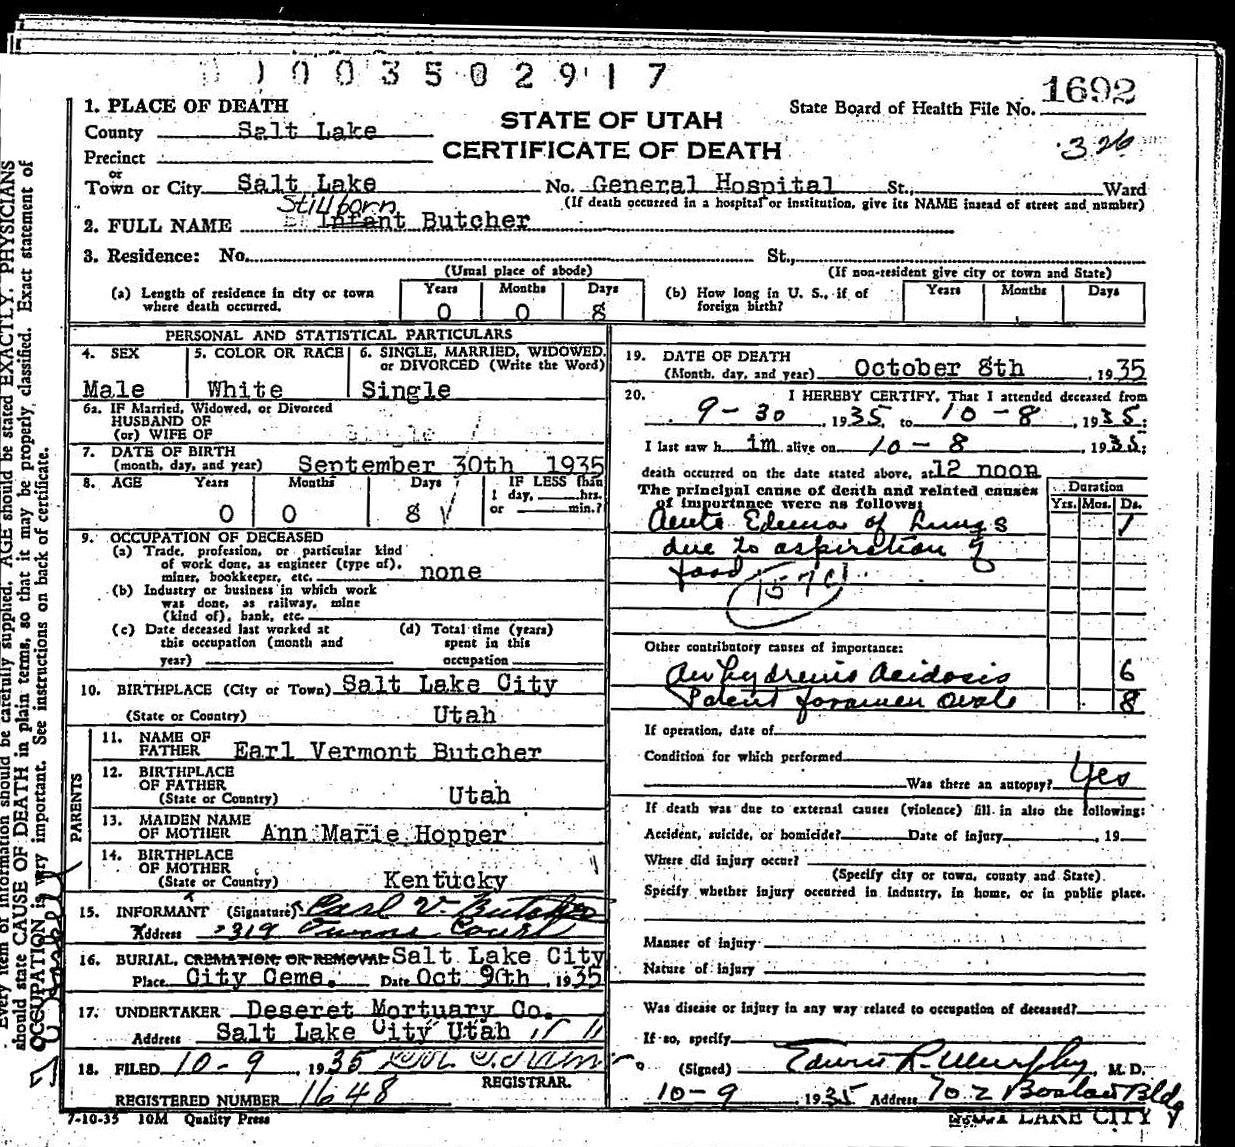 0 1 0 0 3 5 0 2 9 1 7
State Board of Health File No. 1692
326
STATE OF UTAH
CERTIFICATE OF DEATH
1. PLACE OF DEATH
County Salt Lake
Precinct
or
Town or City Salt Lake No. General Hospital St., Ward
(If death occurred in a hospital or institution, give its NAME instead of street and number)
Stillborn
2. FULL NAME Infant Butcher
3. Residence: No. St.,
(Usual place of abode) (If non-resident give city or town and State)
(a) Length of residence in city or town where death occurred. Years 0 Months 0 Days 8
(b) How long in U. S., if of foreign birth? Years Months Days
PERSONAL AND STATISTICAL PARTICULARS
4. SEX Male
5. COLOR OR RACE White
6. SINGLE, MARRIED, WIDOWED, or DIVORCED (Write the Word) Single
6a. IF Married, Widowed, or Divorced
HUSBAND OF
(or) WIFE OF
7. DATE OF BIRTH
(month, day, and year) September 30th 1935
8. AGE Years 0 Months 0 Days 8 IF LESS than 1 day, hrs. or min.?
9. OCCUPATION OF DECEASED
(a) Trade, profession, or particular kind
of work done, as engineer (type of),
miner, bookkeeper, etc. none
(b) Industry or business in which work
was done, as railway, mine
(kind of), bank, etc.
(c) Date deceased last worked at this occupation (month and year)
(d) Total time (years) spent in this occupation
10. BIRTHPLACE (City or Town) Salt Lake City
(State or Country) Utah
PARENTS
11. NAME OF
FATHER Earl Vermont Butcher
12. BIRTHPLACE
OF FATHER
(State or Country) Utah
13. MAIDEN NAME
OF MOTHER Ann Marie Hopper
14. BIRTHPLACE
OF MOTHER
(State or Country) Kentucky
15. INFORMANT (Signature) Earl V. Butcher
Address 319 Court
16. BURIAL, CREMATION, OR REMOVAL Salt Lake City
Place City Ceme. Date Oct 9th, 1935
17. UNDERTAKER Deseret Mortuary Co.
Address Salt Lake City Utah
18. FILED 10-9, 1935
REGISTRAR.
REGISTERED NUMBER 1648
7-10-35 10M Quality Press
19. DATE OF DEATH
(Month, day, and year) October 8th, 1935
20. I HEREBY CERTIFY, That I attended deceased from
9-30, 1935, to 10-8, 1935;
I last saw h im alive on 10-8, 1935;
death occurred on the date stated above, at 12 noon
The principal cause of death and related causes
of importance were as follows:
Duration
Yrs. Mos. Ds.
Acute Edema of Lungs 1
due to aspiration of
food
157c1
Other contributory causes of importance:
Anhydremis Acidosis 6
Patent foramen Ovale 8
If operation, date of
Condition for which performed
Was there an autopsy? Yes
If death was due to external causes (violence) fill in also the following:
Accident, suicide, or homicide? Date of injury, 19
Where did injury occur?
(Specify city or town, county and State)
Specify whether injury occurred in industry, in home, or in public place.
Manner of injury
Nature of injury
Was disease or injury in any way related to occupation of deceased?
If so, specify
(Signed) Edwin R. Murphy, M. D.
10-9 1935 Address 702 Boston Bldg
SALT LAKE CITY
Every item of information should be carefully supplied. AGE should be stated EXACTLY. PHYSICIANS
should state CAUSE OF DEATH in plain terms, so that it may be properly classified. Exact statement of
OCCUPATION is very important. See instructions on back of certificate.